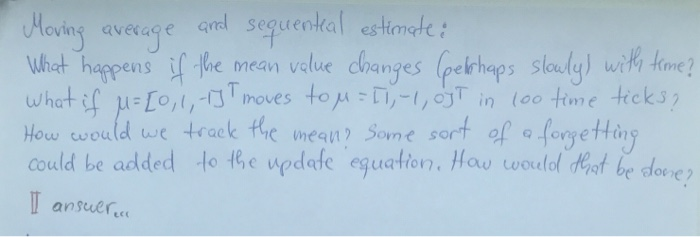 Moving average and sequential estimate:
What happens if the mean value changes (perhaps slowly) with time?
What if μ=[0,1,-1]ᵀ moves to μ=[1,-1,0]ᵀ in 100 time ticks?
How would we track the mean? Some sort of a forgetting
could be added to the update equation. How would that be done?
I answer...